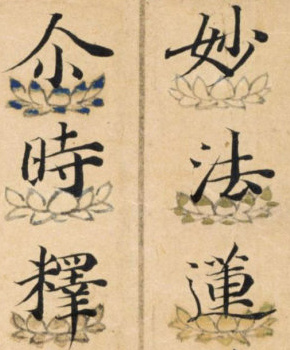 妙法蓮
尒時釋